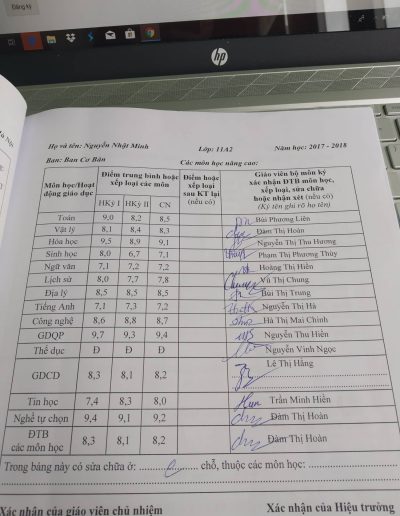 Đăng ký
hp
Họ và tên: Nguyễn Nhật Minh Lớp: 11A2 Năm học: 2017 - 2018
Ban: Ban Cơ Bản Các môn học nâng cao:
Môn học/Hoạt động giáo dục Điểm trung bình hoặc xếp loại các môn Điểm hoặc xếp loại sau KT lại (nếu có) Giáo viên bộ môn ký xác nhận ĐTB môn học, xếp loại, sửa chữa hoặc nhận xét (nếu có) (Ký tên ghi rõ họ tên)
HKỳ I HKỳ II CN
Toán 9,0 8,2 8,5 Bùi Phương Liên
Vật lý 8,1 8,4 8,3 Đàm Thị Hoàn
Hóa học 9,5 8,9 9,1 Nguyễn Thị Thu Hương
Sinh học 8,0 6,7 7,1 Phạm Thị Phương Thùy
Ngữ văn 7,1 7,2 7,2 Hoàng Thị Hiền
Lịch sử 8,0 7,7 7,8 Vũ Thị Chung
Địa lý 8,5 8,5 8,5 Bùi Thị Trung
Tiếng Anh 7,1 7,3 7,2 Nguyễn Thị Hà
Công nghệ 8,6 8,8 8,7 Hà Thị Mai Chinh
GDQP 9,7 9,3 9,4 Nguyễn Thu Hiền
Thể dục Đ Đ Đ Nguyễn Vinh Ngọc
GDCD 8,3 8,1 8,2 Lê Thị Hằng
Tin học 7,4 8,3 8,0 Trần Minh Hiền
Nghề tự chọn 9,4 9,1 9,2 Đàm Thị Hoàn
ĐTB các môn học 8,3 8,1 8,2 Đàm Thị Hoàn
Trong bảng này có sửa chữa ở: ........ chỗ, thuộc các môn học: ........
Xác nhận của giáo viên chủ nhiệm Xác nhận của Hiệu trưởng